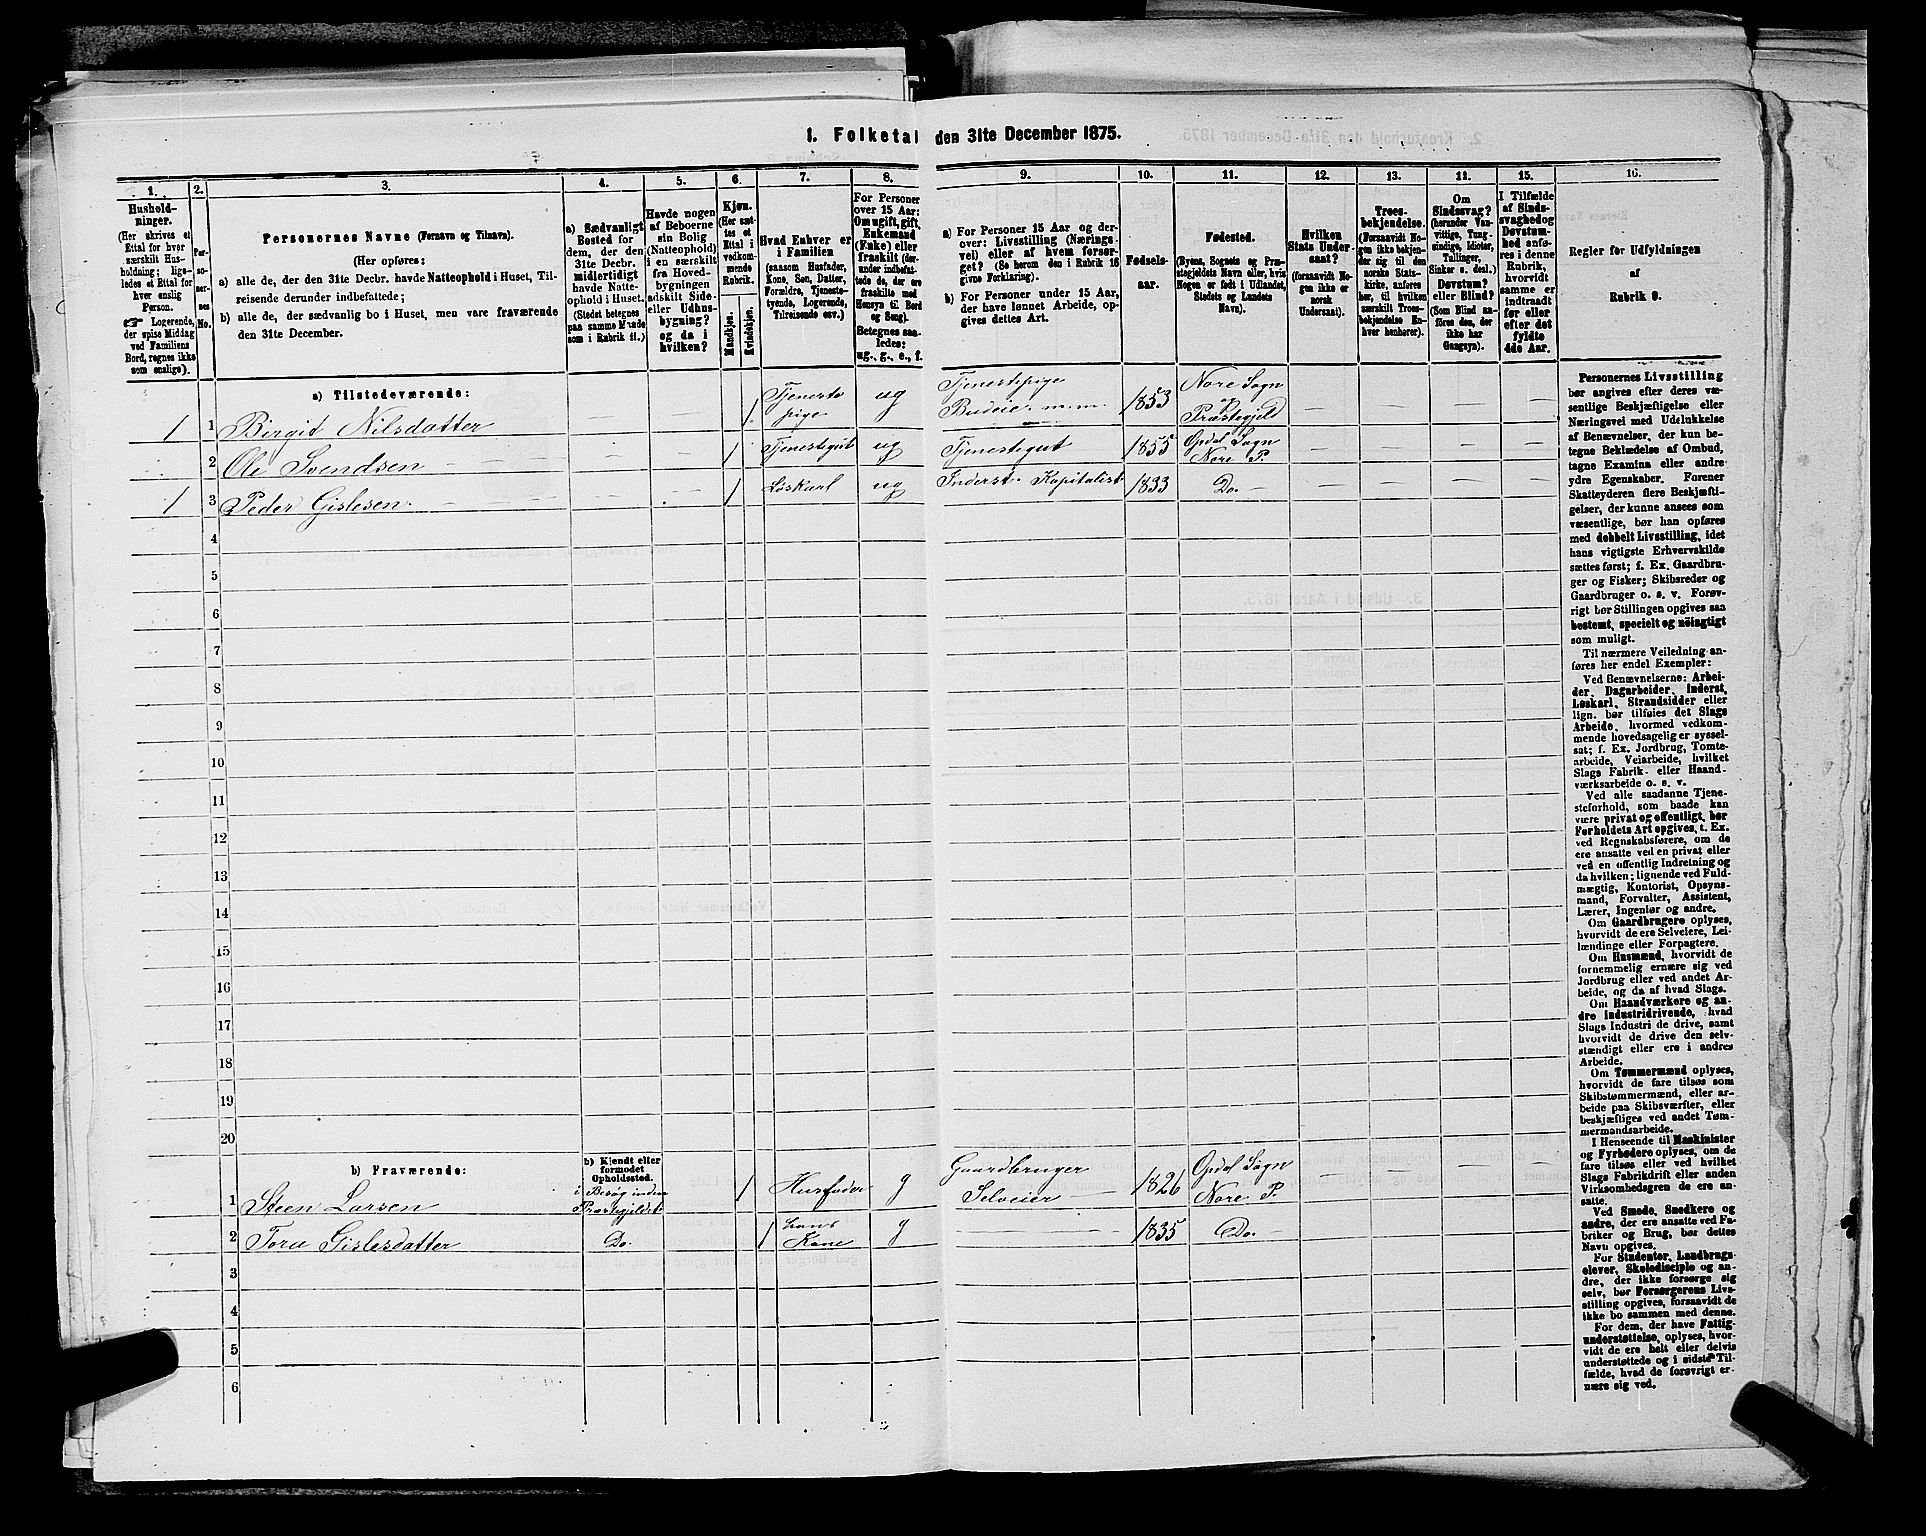 1. Folketal den 31te December 1875.
1.
2.
3.
4.
5.
6.
7.
8.
9.
10.
11.
12.
13.
11.
15.
16.
Hushold-
ninger.
(Her skrives et
Ettal for hver
særskilt Hus-
holdning; lige-
ledes et Ettal for
hver enslig
Person.
☞ Logerende,
der spise Middag
ved Familiens
Bord, regnes ikke
som enslige).
Per-
so-
ner-
nes
No.
Personernes Navne (Fornavn og Tilnavn).
(Her opføres:
a) alle de, der den 31te Decbr. havde Natteophold i Huset, Til-
reisende derunder indbefattede;
b) alle de, der sædvanlig bo i Huset, men vare fraværende
den 31te December.
a) Sædvanligt
Bosted for
dem, der den
31te Decbr.
midlertidigt
havde Natte-
ophold i Huset.
(Stedet betegnes
paa samme Maade
som i Rubrik 11.)
Havde nogen
af Beboerne
sin Bolig
(Natteophold)
i en særskilt
fra Hoved-
bygningen
adskilt Side-
eller Udhus-
bygning?
og da i
hvilken?
Kjøn.
(Her sæt-
tes et
Ettal i
vedkom-
mende
Rubrik.
Mandkjøn.
Kvindekjøn.
Hvad Enhver er
i Familien
(saasom Husfader,
Kone, Søn, Datter,
Forældre, Tjeneste-
tyende, Logerende,
Tilreisende osv.)
For Personer
over 15 Aar:
Om ugift, gift,
Enkemand
(Enke) eller
fraskilt (der-
under indbefat-
tede de, der ere
fraskilte med
Hensyn til Bord
og Seng).
Betegnes saa-
ledes:
ug., g., e., f.
a) For Personer 15 Aar og der-
over: Livsstilling (Nærings-
vei) eller af hvem forsør-
get? (Se herom den i Rubrik 16
givne Forklaring).
b) For Personer under 15 Aar,
der have lønnet Arbeide, op-
gives dettes Art.
Fødsels-
aar.
Fødested.
(Byens, Sognets og Præ-
stegjeldets Navn eller, hvis
Nogen er født i Udlandet,
Stedets og Landets
Navn).
Hvilken
Stats Under-
saat?
(forsaavidt No-
gen ikke er
norsk
Undersaat).
Troes-
bekjendelse.
(Forsaavidt No-
gen ikke bekjen-
der sig til den
norske Stats-
kirke, anføres
her, til hvilken
særskilt Troes-
bekjendelse En-
hver henhører).
Om
Sindssvag?
(herunder Van-
vittige, Tung-
sindige, Idioter,
Tullinger,
Sinker o. desl.)
Døvstum?
eller Blind?
(Som Blind an-
føres den, der
ikke har
Gangsyn).
I Tilfælde
af Sinds-
svaghed og
Døvstum-
hed anfø-
res i denne
Rubrik,
hvorvidt
samme er
indtraadt
før eller
efter det
fyldte
4de Aar.
Regler før Udfyldningen
af
Rubrik 9.
a) Tilstedeværende:
1 1 Birgit Nilsdatter — — 1 Tjeneste pige ug Tjenestepige Budeie m.m. 1853 Nore Sogn & Præstegjeld — — —
2 Ole Svendsen — — — 1 Tjenestegut ug Tjenestegut 1855 Opdal Sogn Nore P. — — —
1 3 Peder Gislesen — — — 1 Løskarl ug Inderst Kapitalist 1833 Do. — — —
4
5
6
7
8
9
10
11
12
13
14
15
16
17
18
19
20
b) Fraværende:
b) Kjendt eller
formodet
Opholdssted.
1 Steen Larsen i Besøg inden Præstegjeldet 1 Husfader g Gaardbruger Selveier 1826 Opdal Sogn Nore P. — — — —
2 Tora Gislesdatter Do. 1 hans Kone g — 1835 Do.
3
4
5
6
Personernes Livsstilling
bør angives efter deres væ-
sentlige Beskjæftigelse eller
Næringsvei med Udelukkelse
af Benævnelser, der kun be-
tegne Beklædelse af Ombud,
tagne Examina eller andre
ydre Egenskaber. Forener
Skatteyderen flere Beskjæfti-
gelser, der kunne ansees som
væsentlige, bør han opføres
med dobbelt Livsstilling, idet
hans vigtigste Erhvervskilde
sættes først; f. Ex. Gaardbru-
ger og Fisker; Skibsreder og
Gaardbruger o. s. v. Forøv-
rigt bør Stillingen opgives saa
bestemt, specielt og nøiagtigt
som muligt.
Til nærmere Veiledning an-
føres her endel Exempler:
Ved Benævnelserne: Arbei-
der, Dagarbeider, Inderst,
Løskarl, Strandsidder eller
lign. bør tilføies det Slags
Arbeide, hvormed vedkom-
mende hovedsagelig er syssel-
sat; f. Ex. Jordbrug, Tomte-
arbeide, Veiarbeide, hvilket
Slags Fabrik- eller Haand-
værksarbeide o. s. v.
Ved alle saadanne Tjene-
steforhold, som baade kan
være privat og offentligt, bør
Forholdets Art opgives, t. Ex.
ved Regnskabsførere, om de
ere ansatte ved en privat eller
ved en offentlig Indretning og
da hvilken; lignende ved Fuld-
mægtig, Kontorist, Opsyns-
mand, Forvalter, Assistent,
Lærer, Ingeniør og andre.
Om Gaardbrugere oplyses,
hvorvidt de ere Selveiere, Lei-
lændinge eller Forpagtere.
Om Husmænd, hvorvidt de
fornemmelig ernære sig ved
Jordbrug eller ved andet Ar-
beide, og da af hvad Slags.
Om Haandværkere og an-
dre Industridrivende, hvad
Slags Industri de drive, samt
hvorvidt de drive den selv-
stændigt eller ere i andres
Arbeide.
Om Tømmermænd oplyses,
hvorvidt de fare tilsøs som
Skibstømmermænd, eller ar-
beide paa Skibsværfter, eller
beskjæftiges ved andet Tøm-
mermandsarbeide.
I Henseende til Maskinister
og Fyrbødere oplyses, om de
fare tilsøs eller ved hvilket
Slags Fabrikdrift eller anden
Virksomhedsgren de ere an-
satte.
Ved Smede, Snedkere og
andre, der ere ansatte ved Fa-
briker og Brug, bør dettes
Navn opgives.
For Studenter, Landbrugs-
elever, Skoledisciple og an-
dre, der ikke forsørge sig
selv, bør Forsørgerens Livs-
stilling opgives, forsaavidt de
ikke bo sammen med denne.
For dem, der have Fattig-
understøttelse, oplyses, hvor-
vidt de ere helt eller delvis
understøttede og i sidste Til-
fælde, hvad de forøvrigt er-
nære sig ved.